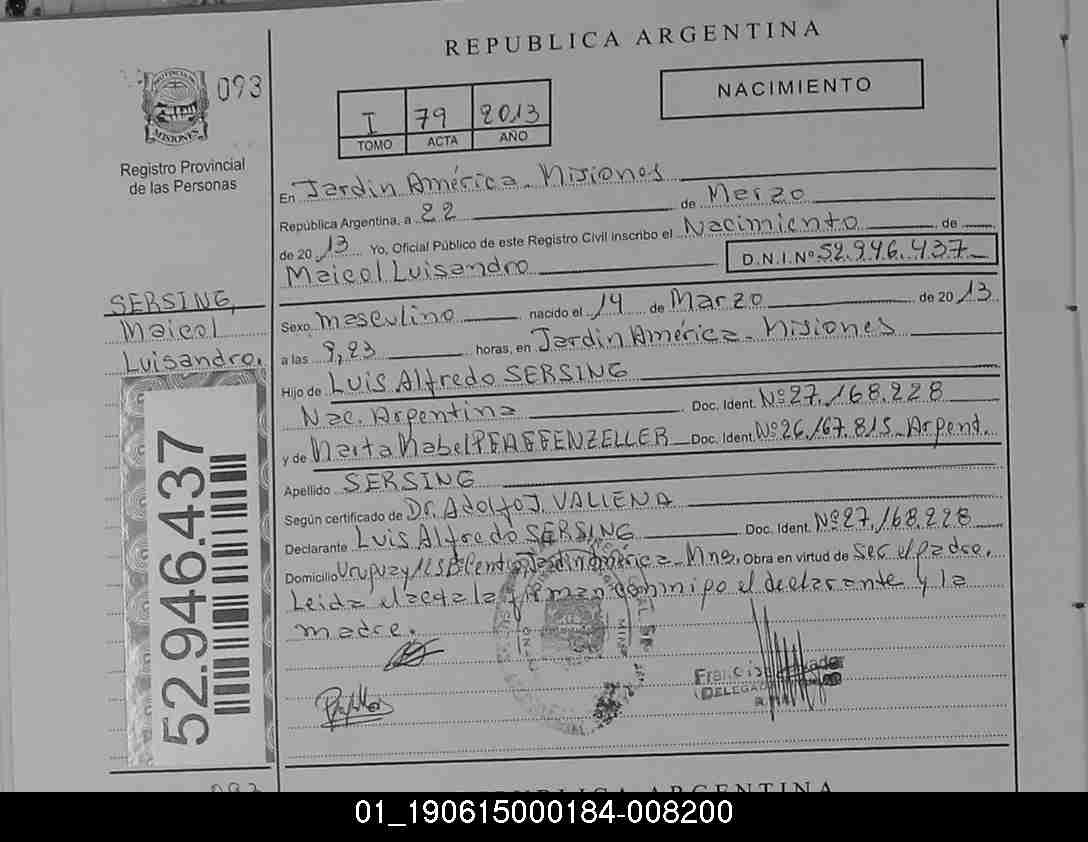 REPUBLICA ARGENTINA
093
PROVINCIA DE
MISIONES
Registro Provincial
de las Personas
I 79 2013
TOMO ACTA AÑO
NACIMIENTO
En Jardin América - Misiones
República Argentina, a 22 de Marzo
de 20 13 Yo, Oficial Público de este Registro Civil inscribo el Nacimiento de
Maicol Luisandro D.N.I. Nº 52.946.437
SERSING,
Maicol
Luisandro.
Sexo masculino nacido el 14 de Marzo de 20 13
a las 9,23 horas, en Jardin América - Misiones
Hijo de Luis Alfredo SERSING
Nac. Argentina Doc. Ident. Nº 27.168.228
y de Marta Mabel PFAFFENZELLER Doc. Ident. Nº 26.167.815 - Argent.
Apellido SERSING
Según certificado de Dr. Adolfo J. VALIENA
Declarante Luis Alfredo SERSING Doc. Ident. Nº 27.168.228
Domicilio Uruguay Jardin América - Mnes. Obra en virtud de Ser el padre.
Leida el acta la firman conmigo el declarante y la
madre.
52.946.437
DELEGA
093
REPUBLICA ARGENTINA
01_190615000184-008200